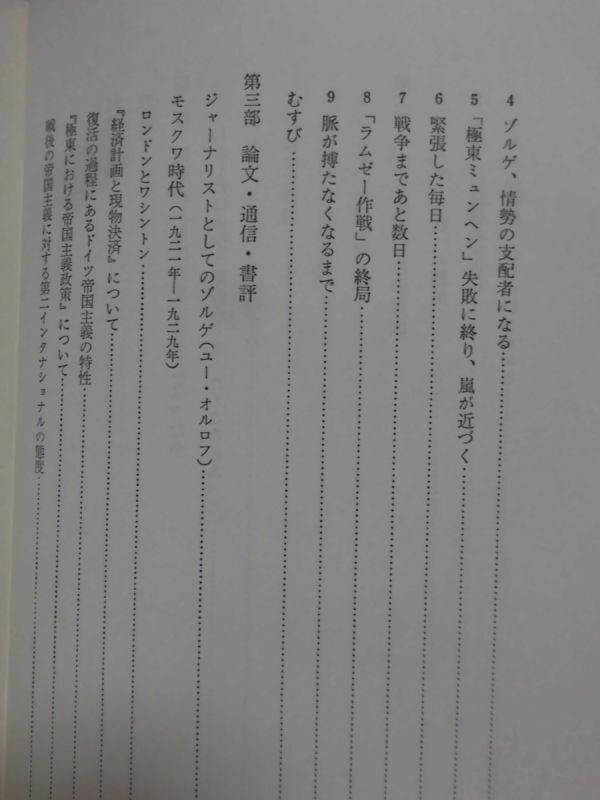 4 ゾルゲ、情勢の支配者になる……………………
5 「極東ミュンヘン」失敗に終り、嵐が近づく……………………
6 緊張した毎日……………………
7 戦争まであと数日……………………
8 「ラムゼー作戦」の終局……………………
9 脈が搏たなくなるまで……………………
むすび……………………
第三部 論文・通信・書評
ジャーナリストとしてのゾルゲ(ユー・オルロフ)……………………
モスクワ時代(一九二一年—一九二九年)
ロンドンとワシントン……………………
『経済計画と現物決済』について……………………
復活の過程にあるドイツ帝国主義の特性……………………
『極東における帝国主義政策』について……………………
戦後の帝国主義に対する第二インタナショナルの態度……………………